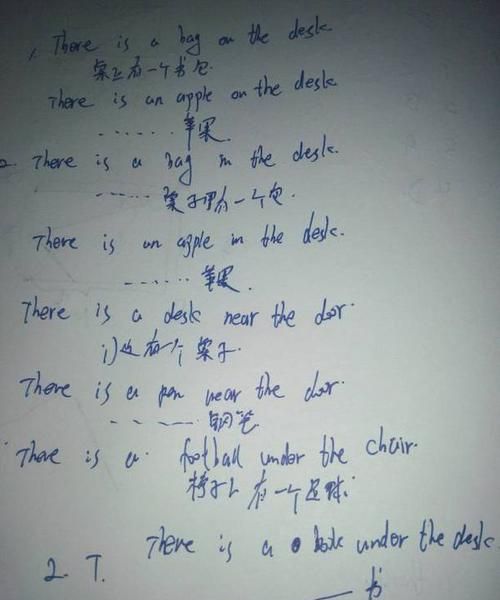 1. There is a bag on the desk
桌上有一个书包.
There is an apple on the desk
...... 苹果.
2. There is a bag in the desk.
...... 桌子里有一个包.
There is an apple in the desk.
...... 苹果.
There is a desk near the door.
门边有一个桌子.
There is a pen near the door.
...... 钢笔
There is a football under the chair.
椅子下有一个足球.
There is a book under the desk
2. T.
—— 书